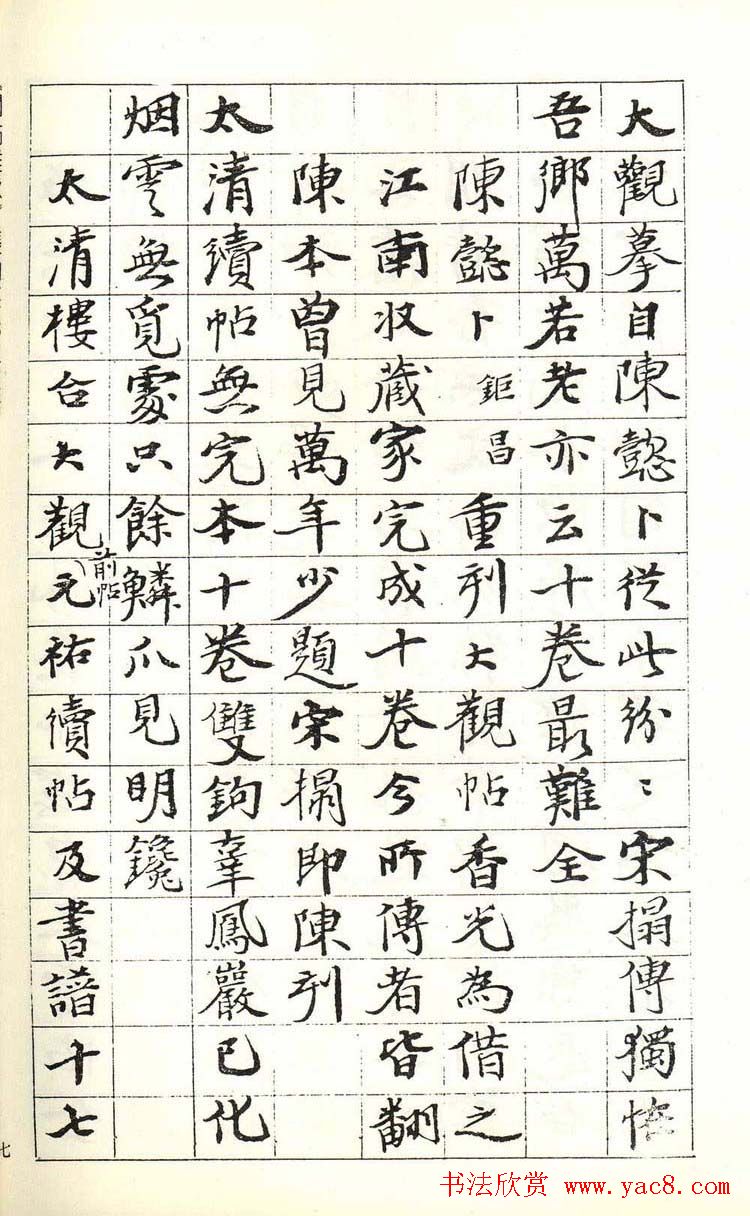 大觀摹自陳懿卜從此紛〻宋搨傳獨怪
吾鄉萬若老亦云十卷最難全
陳懿卜鉅昌重刊大觀帖香光為借之
江南收藏家完成十卷今所傳者皆翻
陳本曾見萬年少題宋搨即陳刊
太清續帖無完本十卷雙鉤鳳巖已化
烟雲無覓處只餘鱗爪見明鑱
太清樓合大觀前帖元祐續帖及書譜十七
七
书法欣赏 www.yac8.com